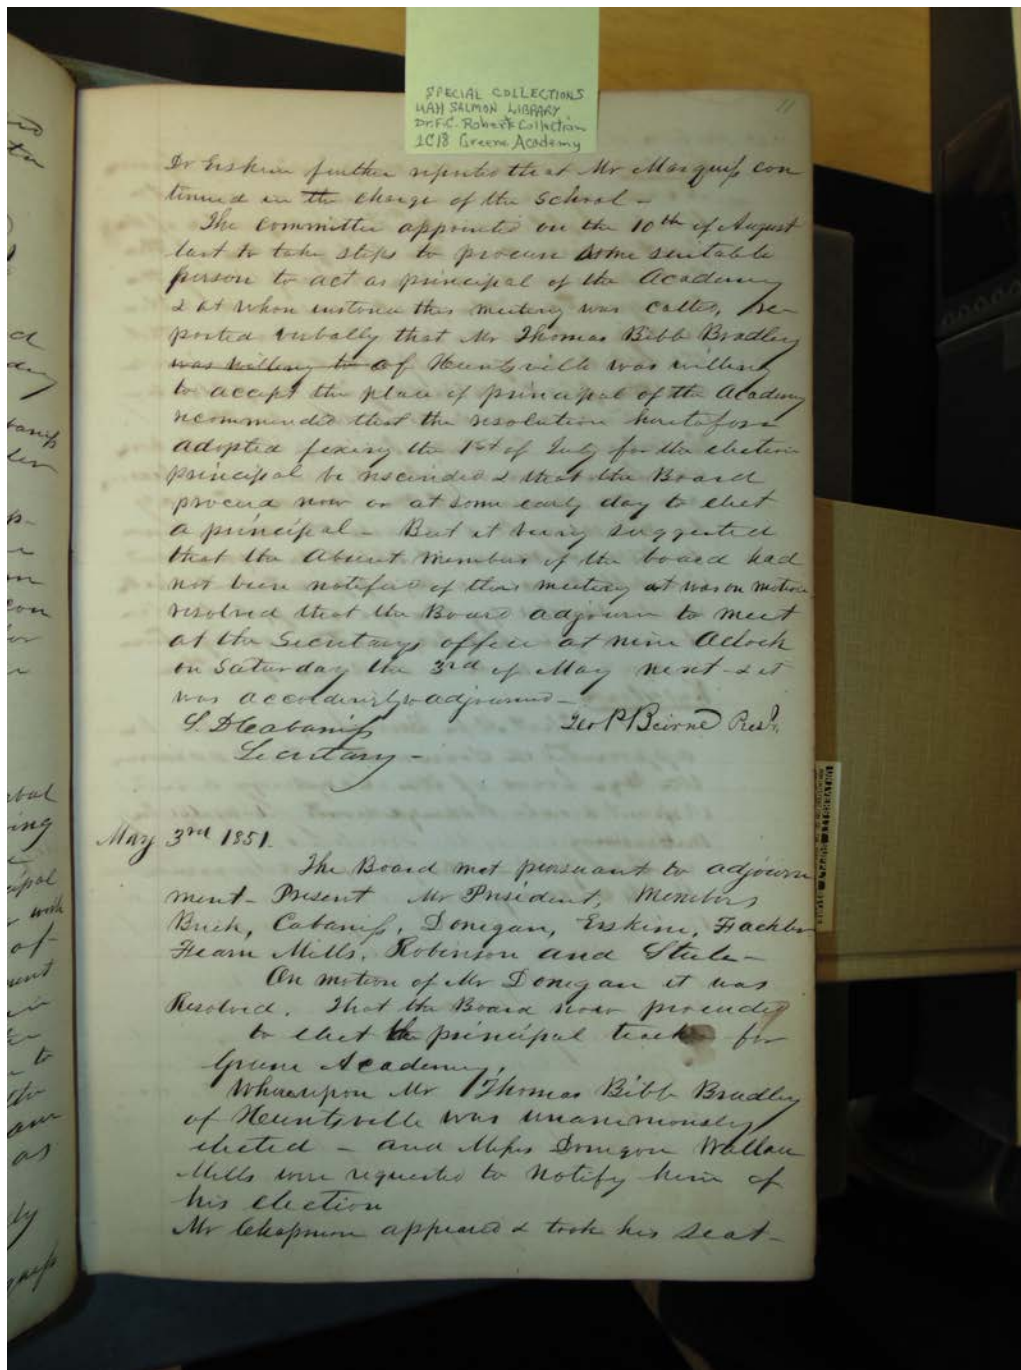 SPECIAL COLLECTIONS
UAH SALMON LIBRARY
Dr. F.C. Roberts Collection
2C18 Greene Academy
11
Dr Erskine further reported that Mr Marquiss con
tinued in the charge of the School –
The committee appointed on the 10th of August
last to take steps to procure some suitable
person to act as principal of the Academy
& at whose instance this meeting was called, re-
ported verbally that Mr Thomas Bibb Bradley
was willing to of Huntsville was willing
to accept the place of principal of the Academy
recommended that the resolution heretofore
adopted fixing the 1st of July for the election
principal be rescinded & that the Board
proceed now or at some early day to elect
a principal – But it being suggested
that the absent members of the board had
not been notified of this meeting it was on motion
resolved that the Board adjourn to meet
at the Secretarys office at nine Oclock
on Saturday the 3rd of May next – & it
was accordingly adjourned –
S. D Cabaniss Geo P Beirne Prest.
Secretary –
May 3rd 1851.
The Board met pursuant to adjourn
ment – Present Mr President, Members
Brick, Cabaniss, Donegan, Erskine, Fackler
Fearn Mills, Robinson and Steele –
On motion of Mr Donegan it was
Resolved. That the Board now proceed
to elect principal teacher for
Greene Academy,
Whereupon Mr Thomas Bibb Bradley
of Huntsville was unanimously
elected – and Messrs Donegan Wallace
Mills were requested to notify him of
his election
Mr Chapman appeared & took his seat –